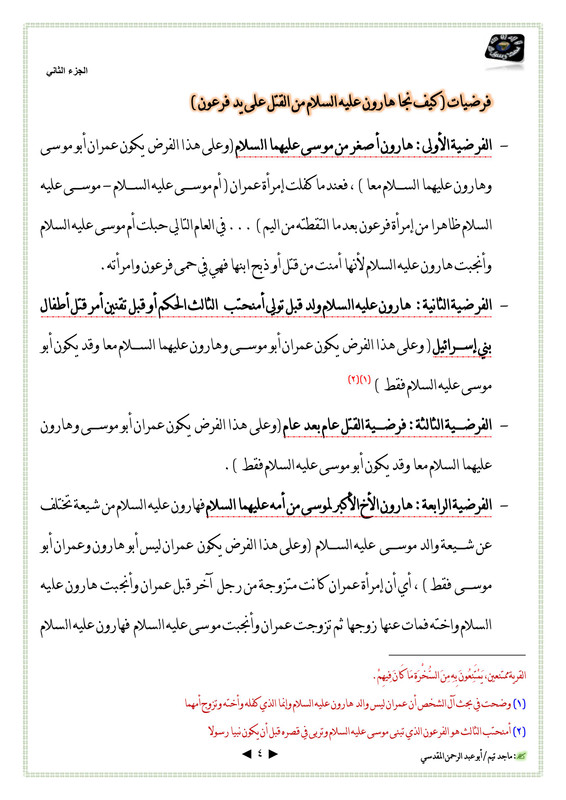 الجزء الثاني
فرضيات ( كيف نجا هارون عليه السلام من القتل على يد فرعون )
– الفرضية الأولى : هارون أصغر من موسى عليهما السلام (وعلى هذا الفرض يكون عمران أبو موسى
وهارون عليهما السلام معا ) ، فعندما كفلت إمرأة عمران ( أم موسى عليه السلام – موسى عليه
السلام ظاهرا من إمرأة فرعون بعد ما التقطته من اليم ) ... في العام التالي حبلت أم موسى عليه السلام
وأنجبت هارون عليه السلام لأنها أمنت من قتل أو ذبح ابنها فهي في حمى فرعون وامرأته .
– الفرضية الثانية : هارون عليه السلام ولد قبل تولي أمنحتب الثالث الحكم أو قبل تقنين أمر قتل أطفال
بني إسرائيل ( وعلى هذا الفرض يكون عمران أبو موسى وهارون عليهما السلام معا وقد يكون أبو
موسى عليه السلام فقط ) (١)(٢)
– الفرضية الثالثة : فرضية القتل عام بعد عام (وعلى هذا الفرض يكون عمران أبو موسى وهارون
عليهما السلام معا وقد يكون أبو موسى عليه السلام فقط ) .
– الفرضية الرابعة : هارون الأخ الأكبر لموسى من أمه عليهما السلام فهارون عليه السلام من شيعة تختلف
عن شيعة والد موسى عليه السلام (وعلى هذا الفرض يكون عمران ليس أبو هارون وعمران أبو
موسى فقط ) ، أي أن إمرأة عمران كانت متزوجة من رجل آخر قبل عمران وأنجبت هارون عليه
السلام واخته فمات عنها زوجها ثم تزوجت عمران وأنجبت موسى عليه السلام فهارون عليه السلام
القرية ممتعين، يَمْتِعُونَ بِهِ مِنَ السُّخْرَة مَا كَانَ فِيهِمْ .
(١) وضحت في بحث آل الشخص أن عمران ليس والد هارون عليه السلام وإنما الذي كفله وأخته وتزوج أمهما
(٢) أمنحتب الثالث هو الفرعون الذي تبنى موسى عليه السلام وتربى في قصره قبل أن يكون نبيا رسولا
: ماجد تيم / أبو عبد الرحمن المقدسي
٤